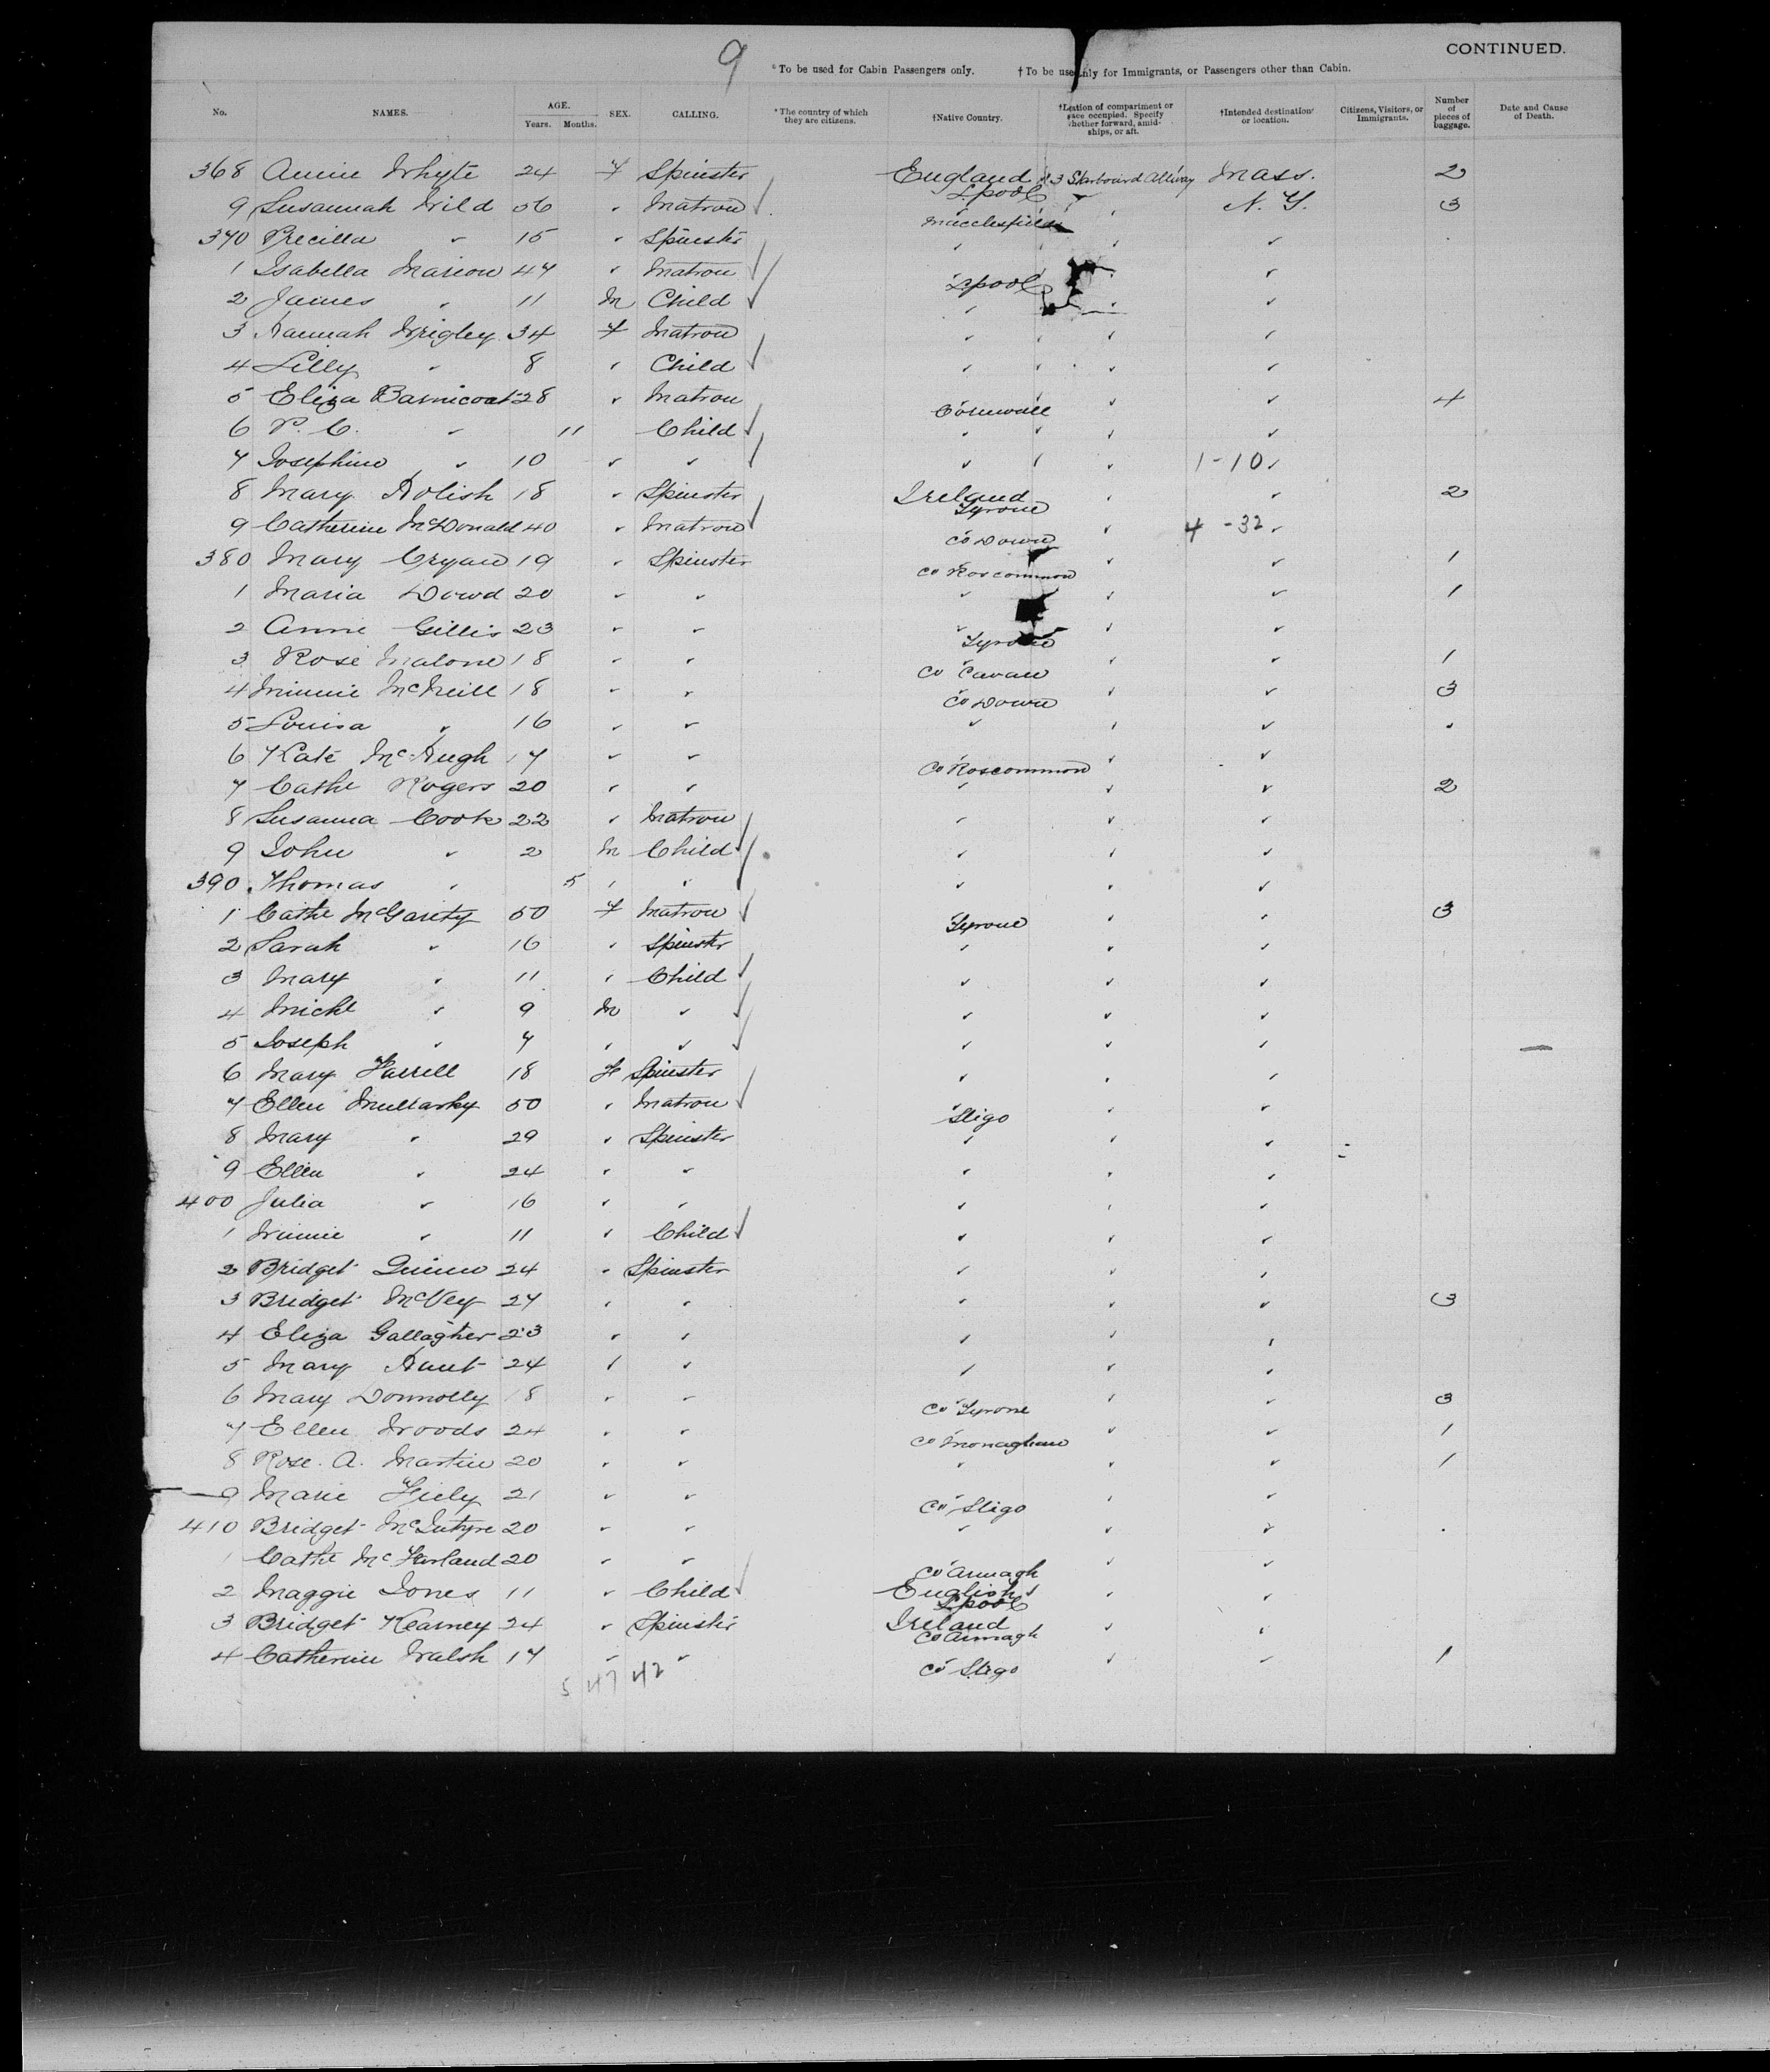 9
CONTINUED.
*To be used for Cabin Passengers only. †To be used only for Immigrants, or Passengers other than Cabin.
No. NAMES. AGE. Years. Months. SEX. CALLING. *The country of which they are citizens. †Native Country. †Location of compartment or space occupied. Specify whether forward, amidships, or aft. †Intended destination or location. Citizens, Visitors, or Immigrants. Number of pieces of baggage. Date and Cause of Death.
368 Annie Whyte 24 F Spinster England L.pool 3 Starboard Allway Mass. 2
9 Susannah Wild 56 " Matron Macclesfield " N.Y. 3
370 Precilla " 15 " Spinster " " "
1 Isabella Marion 47 " Matron L.pool " "
2 James " 11 M Child " " "
3 Hannah Wrigley 34 F Matron " " "
4 Lilly " 8 " Child " " "
5 Eliza Barnicoat 28 " Matron Cornwall " " 4
6 P. C. " 11 Child " " "
7 Josephine " 10 " " " " 1-10 "
8 Mary Holish 18 " Spinster Ireland Tyrone " " 2
9 Catherine McDonald 40 " Matron Co Down " 4-32 "
380 Mary Cryan 19 " Spinster Co Roscommon " " 1
1 Maria Dowd 20 " " " " " 1
2 Anne Gillis 23 " " Tyrone " "
3 Rose Malone 18 " " Co Cavan " " 1
4 Minnie McNeill 18 " " Co Down " " 3
5 Louisa " 16 " " " " " "
6 Kate McHugh 17 " " Co Roscommon " "
7 Cathe Rogers 20 " " " " " 2
8 Susanna Cook 22 " Matron " " "
9 John " 2 M Child " " "
390 Thomas " 5 " " " " "
1 Cathe McGarity 50 F Matron Tyrone " " 3
2 Sarah " 16 " Spinster " " "
3 Mary " 11 " Child " " "
4 Michl " 9 M " " " "
5 Joseph " 7 " " " " "
6 Mary Farrell 18 F Spinster " " "
7 Ellen Mullarky 50 " Matron Sligo " "
8 Mary " 29 " Spinster " " "
9 Ellen " 24 " " " " "
400 Julia " 16 " " " " "
1 Winnie " 11 " Child " " "
2 Bridget Quinn 24 " Spinster " " "
3 Bridget McVey 27 " " " " " 3
4 Eliza Gallagher 23 " " " " "
5 Mary Hunt 24 " " " " "
6 Mary Donnolly 18 " " Co Tyrone " " 3
7 Ellen Woods 24 " " Co Monaghan " " 1
8 Rose. A. Martin 20 " " " " " 1
9 Marie 21 " " Co Sligo " "
410 Bridget McIntyre 20 " " " " "
1 Cathe McFarland 20 " " Co Armagh " "
2 Maggie Jones 11 " Child English L.pool " "
3 Bridget Kearney 24 " Spinster Ireland Co Armagh " "
4 Catherine Walsh 17 " " Co Sligo " " 1
5 47 42